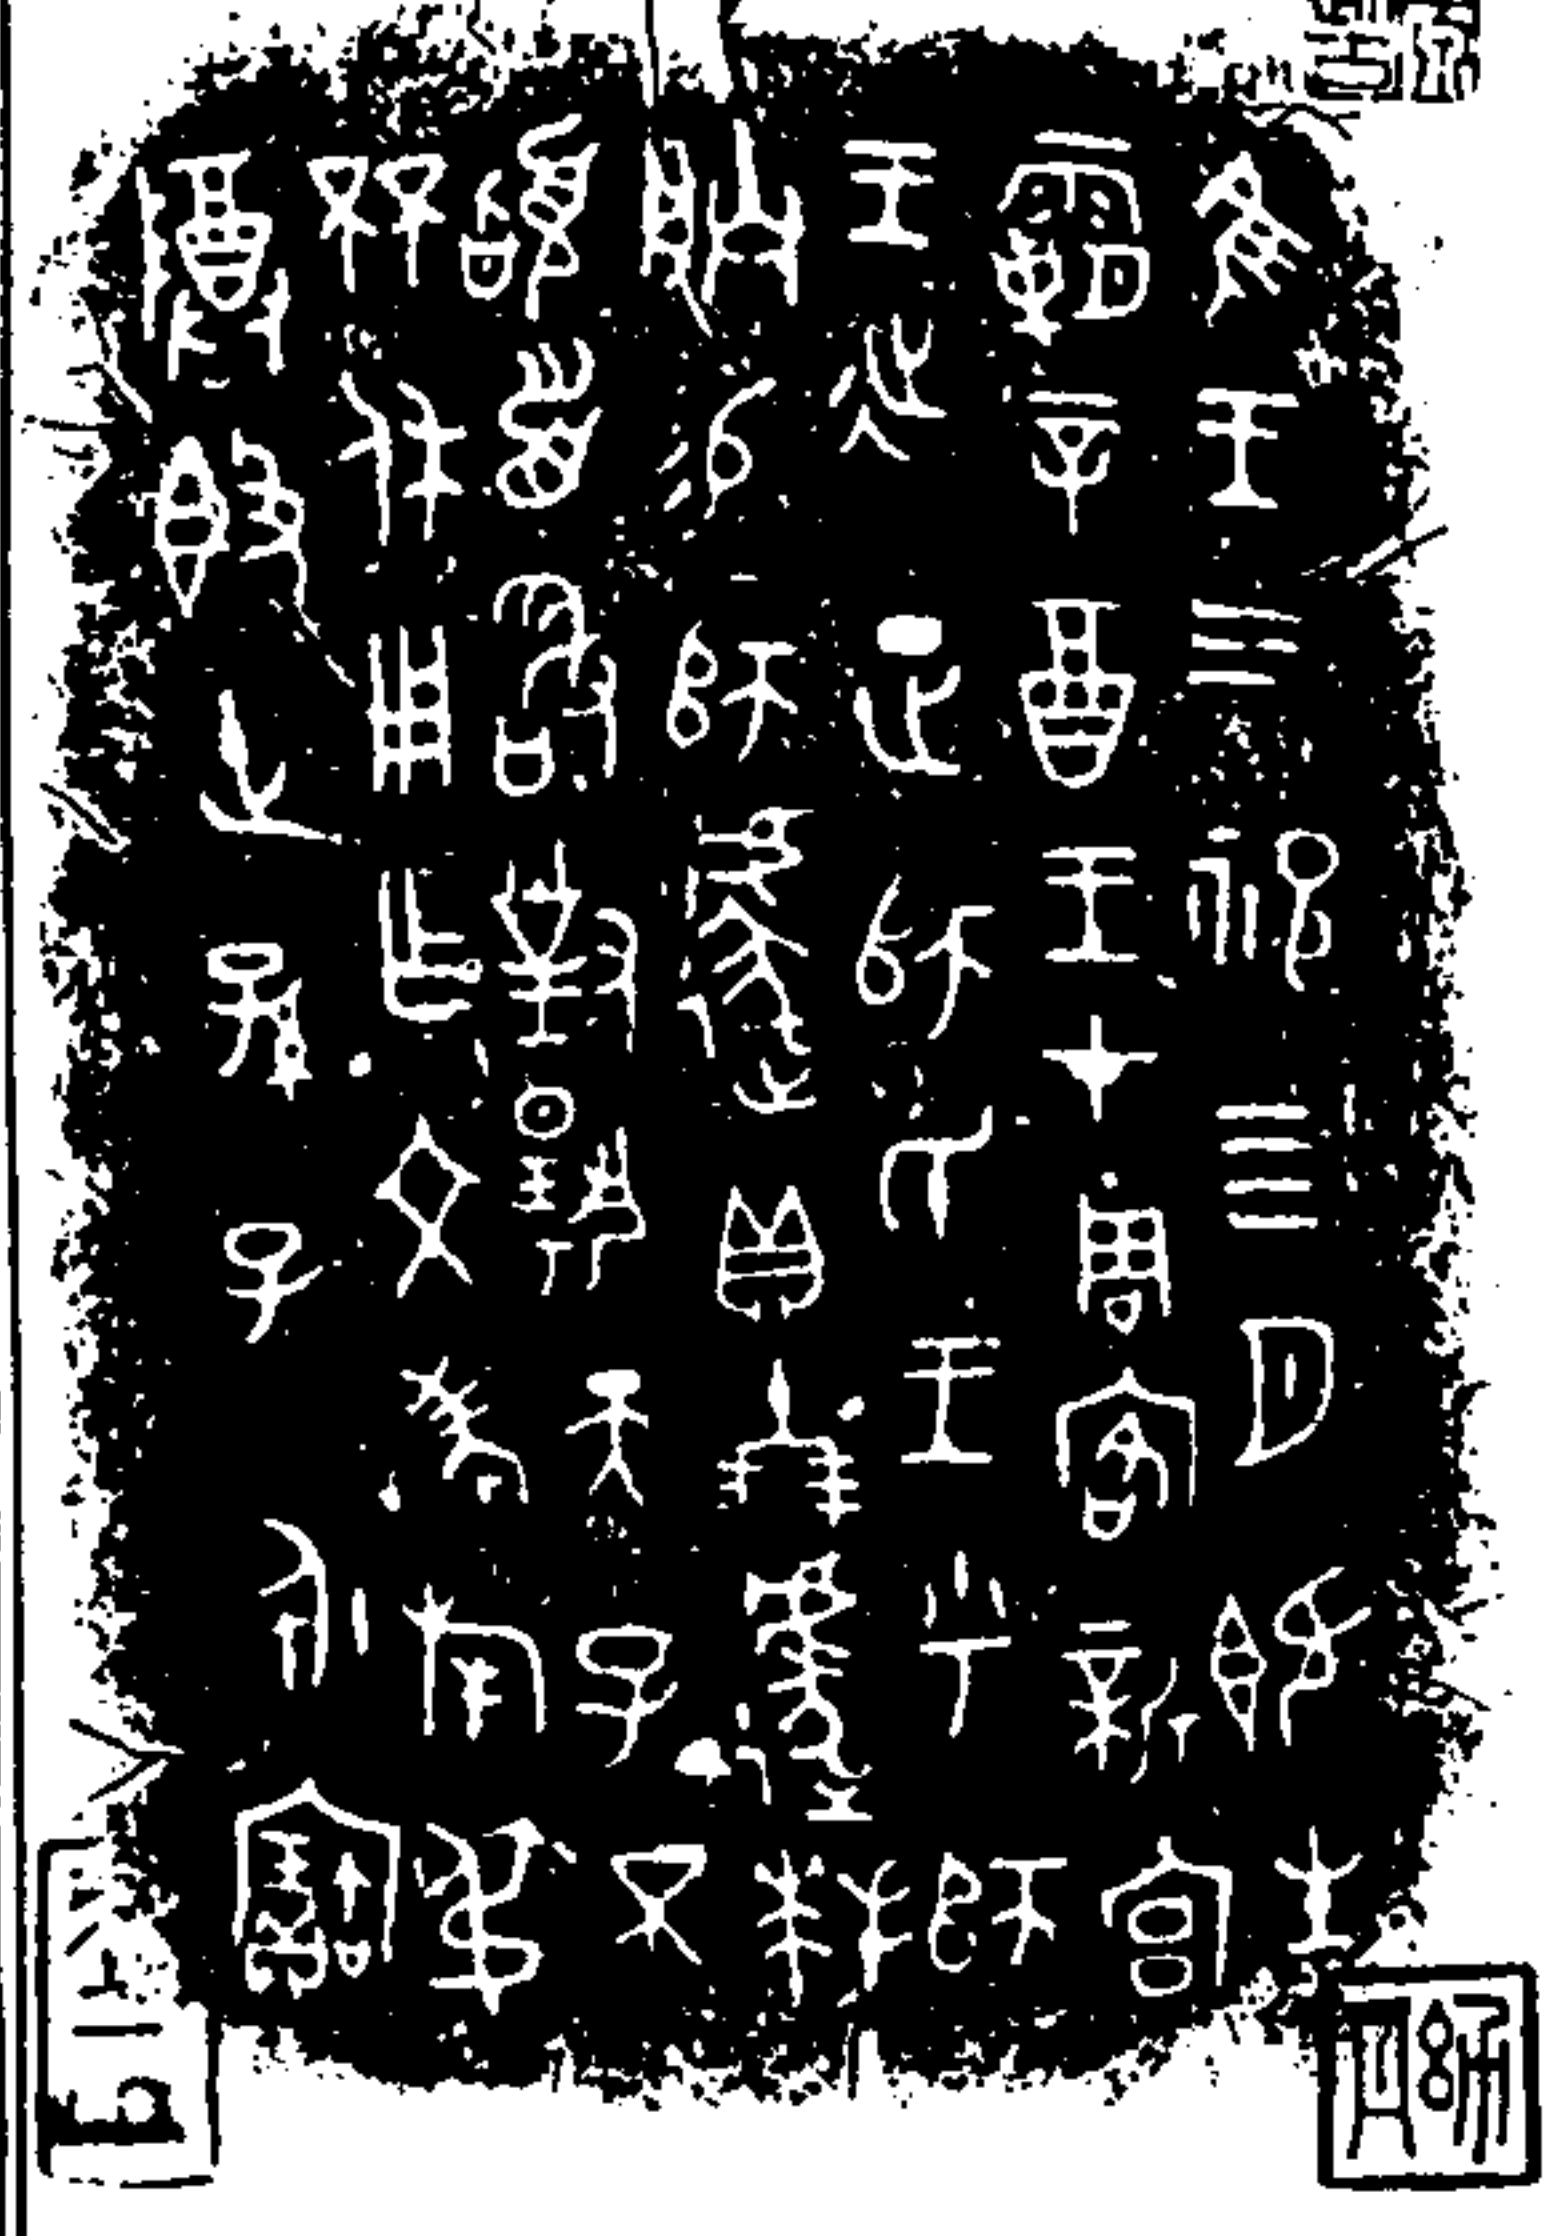 隹王三祀四月既生
霸辛酉王才周客新宮
王征正師氏王乎師
朕易師遽貝十朋遽拜
𩒨首敢對揚天子不
不休用乍文考旄弔
尊𣪘世孫子永寶